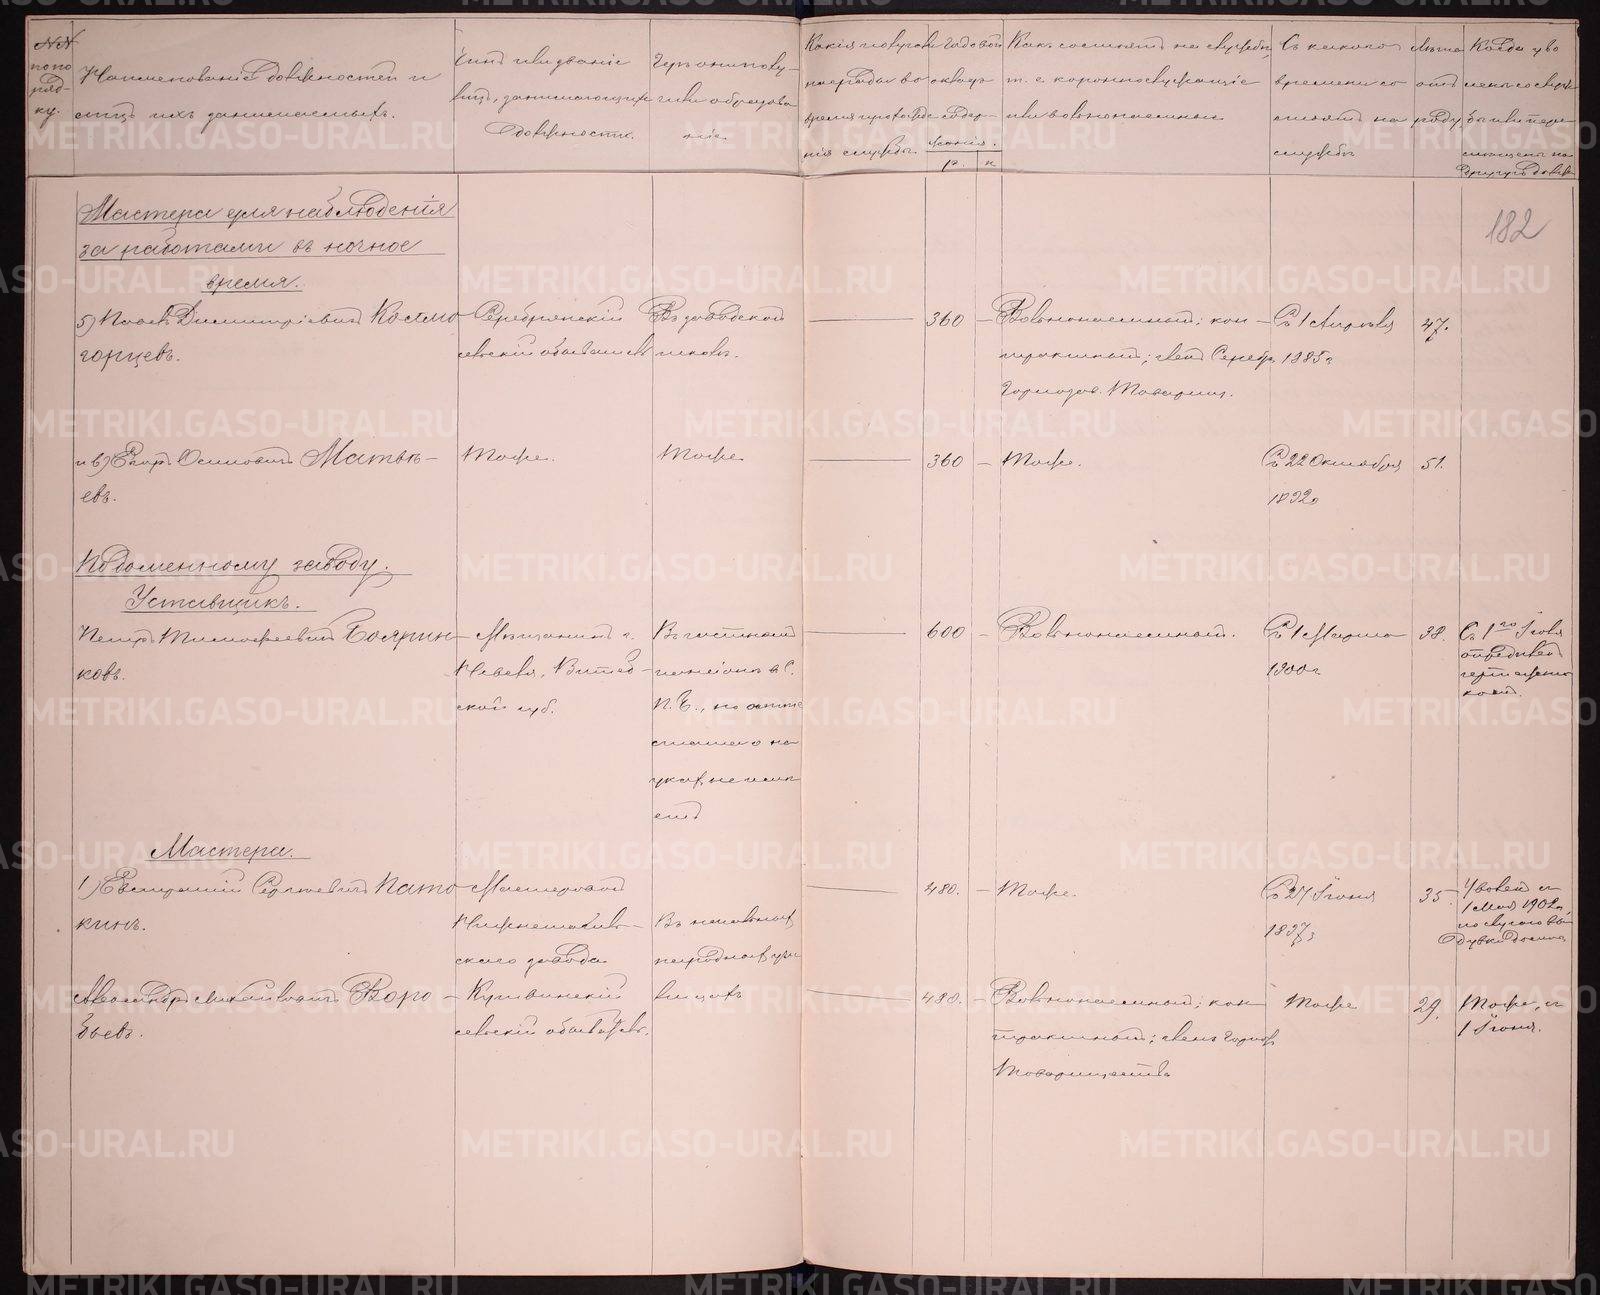 №№ по порядку.
Наименованіе должностей и лицъ ихъ занимаемыхъ.
Чинъ и званіе лицъ, занимающихъ должности.
Гдѣ они получили образованіе.
Какія получали награды во время прохожденія службы.
Годовой окладъ содержанія.
р. к.
Какъ состоятъ на службѣ, т. е. коронно-служащіе или вольнонаемные
Съ какого времени состоятъ на службѣ
Лѣта отъ роду
Когда уволены со службы или перемѣщены на другую должн
182
Мастера для наблюденія
за работами въ ночное
время.
5) Павелъ Димитріевичъ Костло-
горцевъ.
Серебрянскій
сельскій обыватель
Въ заводской
школѣ.
360 —
Вольнонаемный; кон-
трактный; членъ Серебр.
Горнозав. Товарищ.
Съ 1 Апрѣля
1885 г.
47.
и 6) Егоръ Осиповичъ Матвѣ-
евъ.
Тоже.
Тоже
360 —
Тоже.
Съ 22 Октября
1892 г.
51.
По доменному заводу.
Уставщикъ.
Петръ Тимофеевичъ Бояринковъ.
Мѣщанинъ г.
Невеля, Витеб-
ской губ.
Въ частномъ
пансіонѣ въ С.
П. Б., но аттестата о наукахъ не имѣетъ
600 —
Вольнонаемный.
Съ 1 Марта
1900 г.
38.
Съ 1го Іюля
опредѣленъ
чертежникомъ.
Мастера.
1) Евстафій Сергѣевичъ Пато-
кинъ.
Мастеровой
Нижнетагиль-
скаго завода
Въ начальномъ
народномъ учи-
480. —
Тоже.
Съ 27 Іюня
1897 г.
35.
Уволенъ съ
1 Мая 1901 г.,
по случаю вы
дувки домны
Александръ Михайловичъ Воро-
бьевъ.
Кушвинскій
сельскій обыватель.
лищѣ
480. —
Вольнонаемный; кон-
трактный; членъ горноз.
Товарищества
Тоже
29.
Тоже, съ
1 Іюня.
METRIKI.GASO-URAL.RU